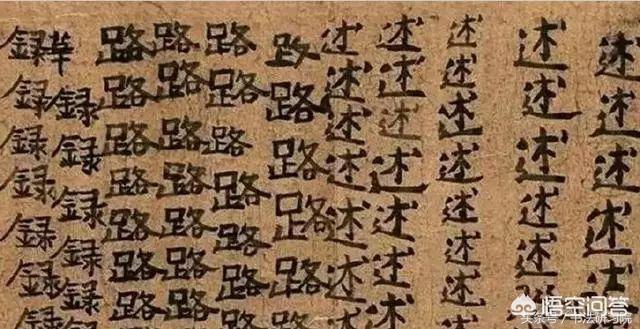 述述述述述述述
述述述述述
述述述述述述述
述述述述述述述
述述述述述述述
路路路路路路
路路路路路路路
路路路路路路路路
路路路路路路路
録録録録録録
録録録録録録録
悟空问答